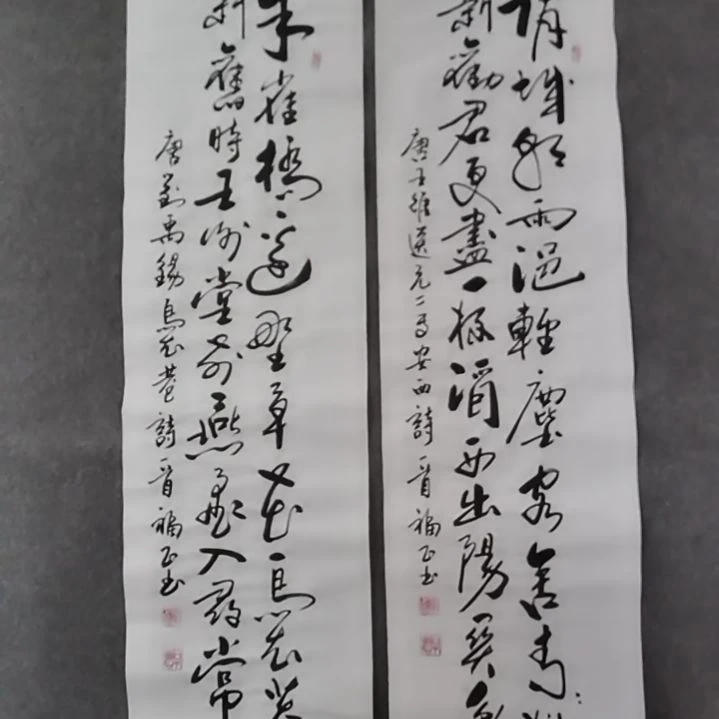 渭城朝雨浥輕塵客舍青
新勸君更盡一杯酒西出陽關無
唐王維送元二使安西詩一首福正书
朱雀橋邊野草花烏衣巷
斜舊時王謝堂前燕飛入尋常
唐劉禹錫烏衣巷詩一首福正书